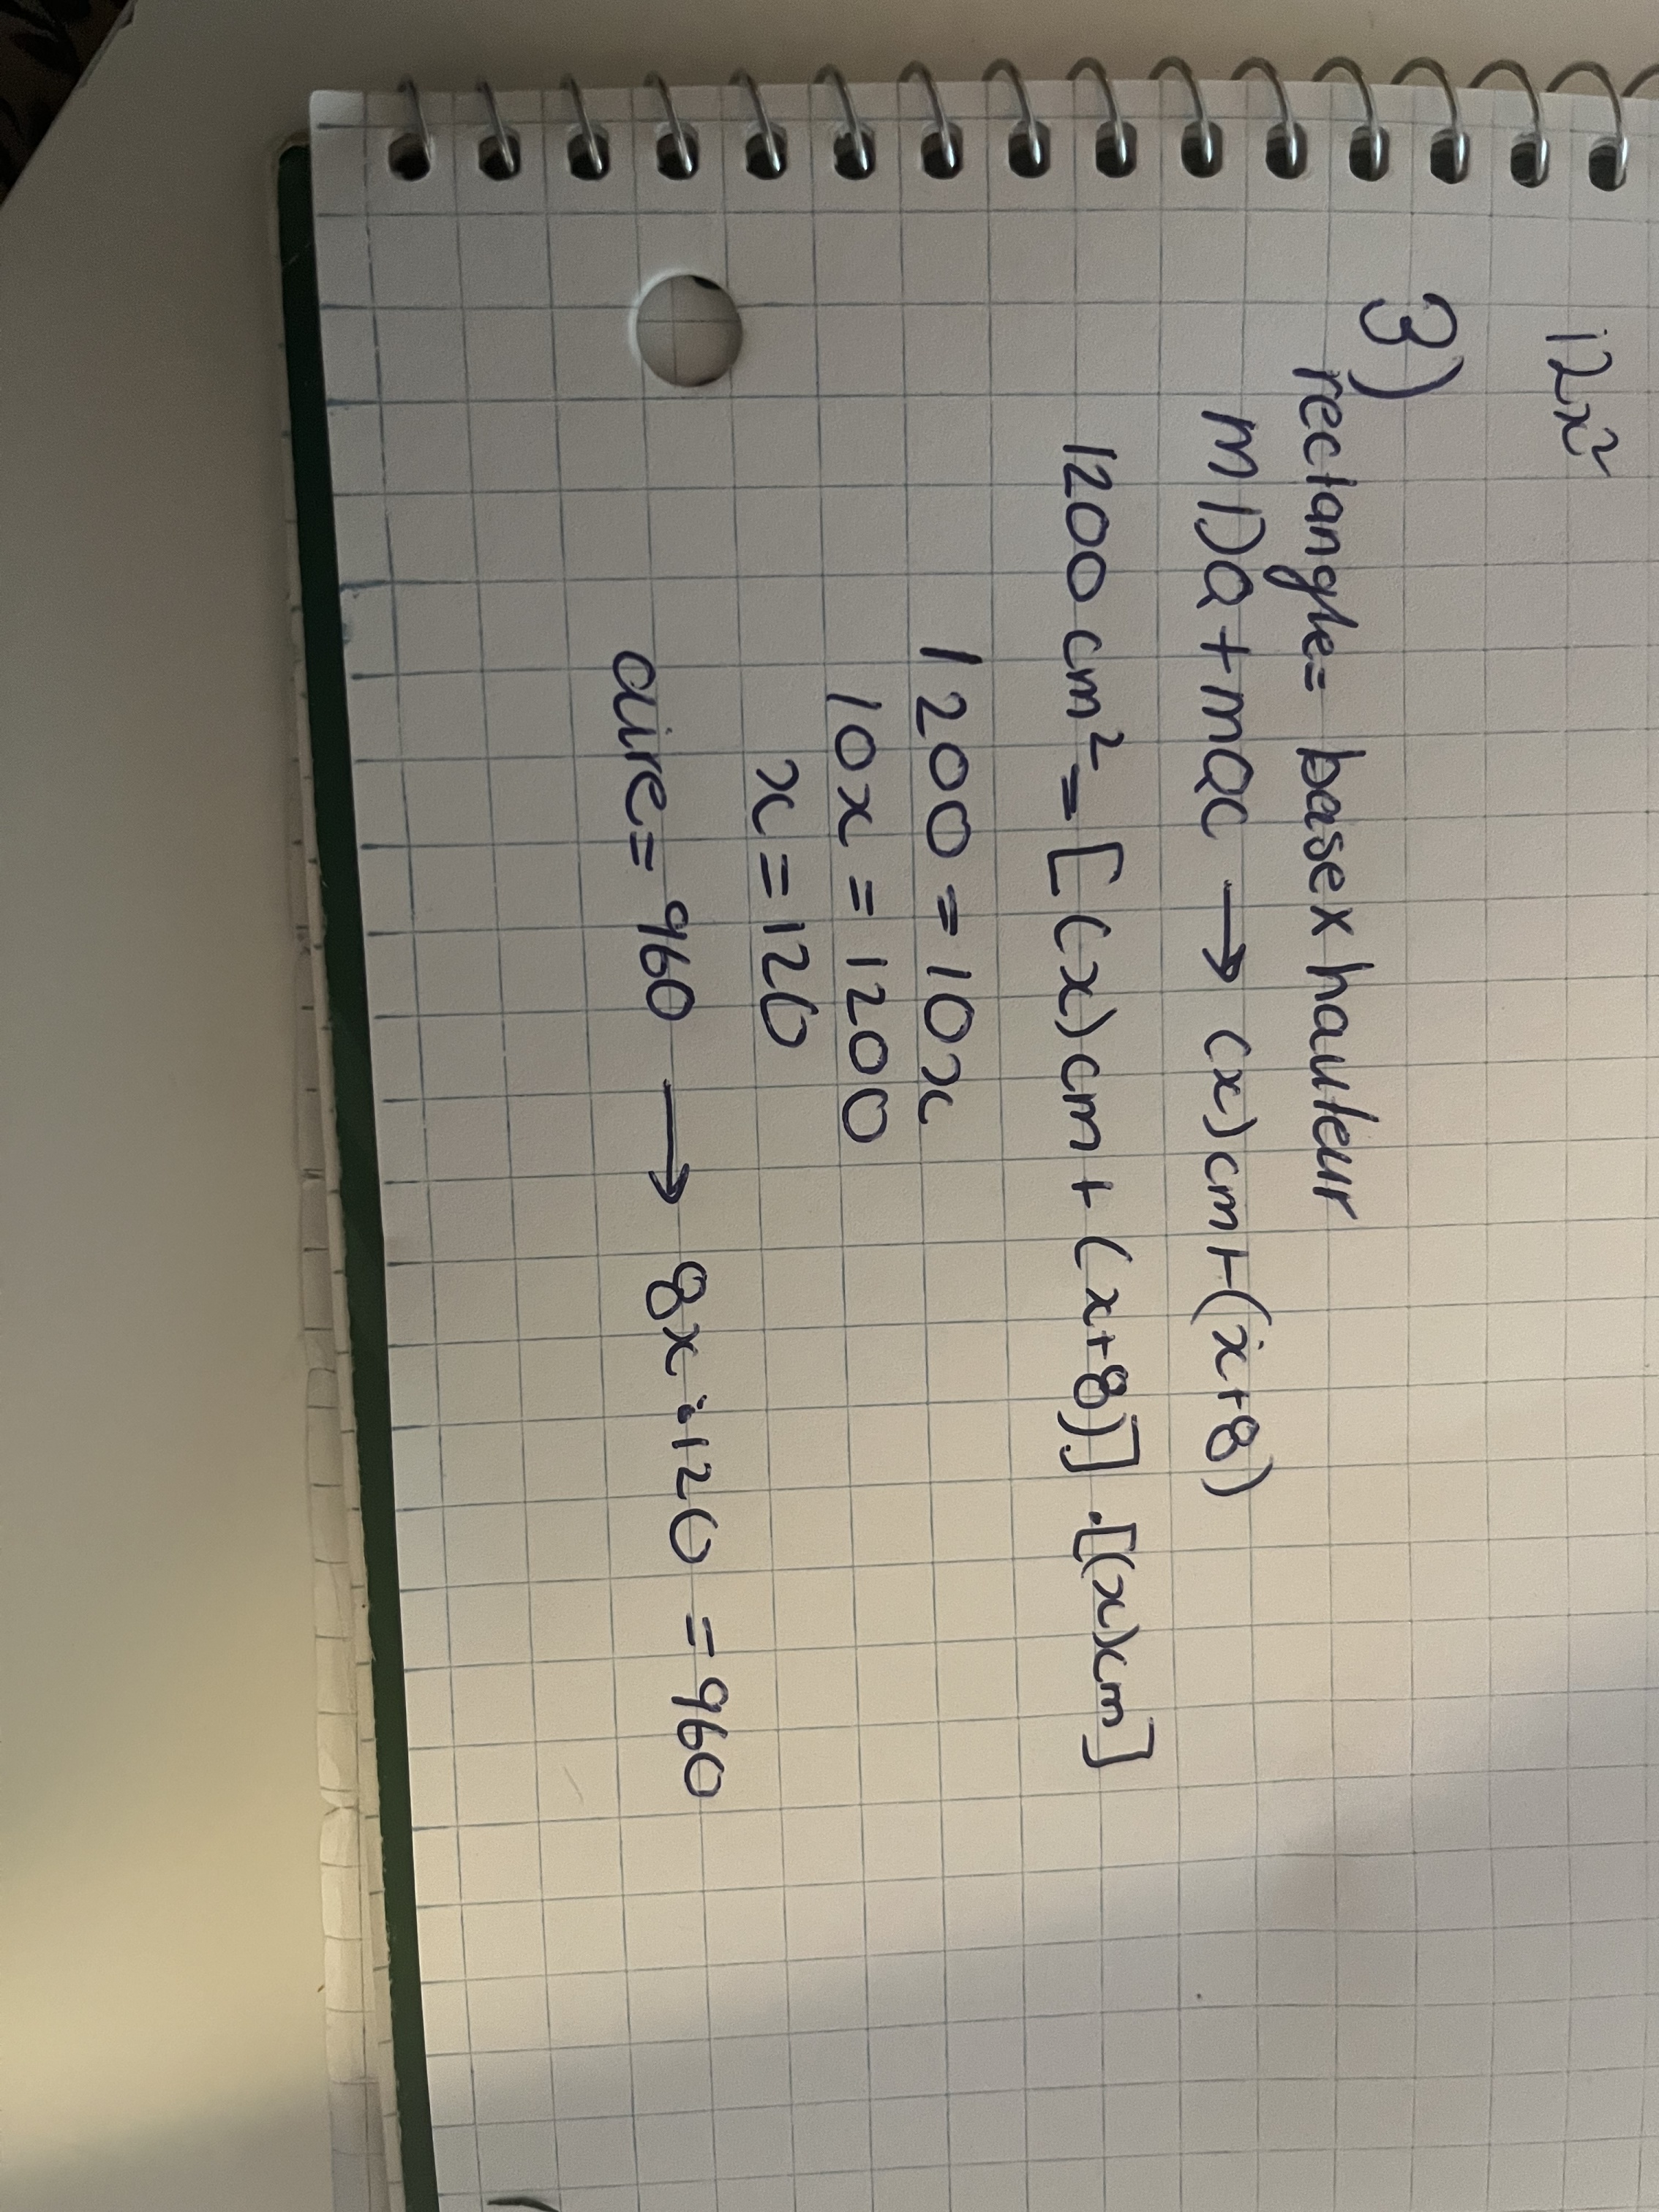 12x²
3)
rectangle = base x hauteur
m DA + m AC → (x)cm + (x+8)
1200 cm² = [(x)cm + (x+8)] · [(x)cm]
1200 = 10x
10x = 1200
x = 120
aire = 960 → 8x · 120 = 960